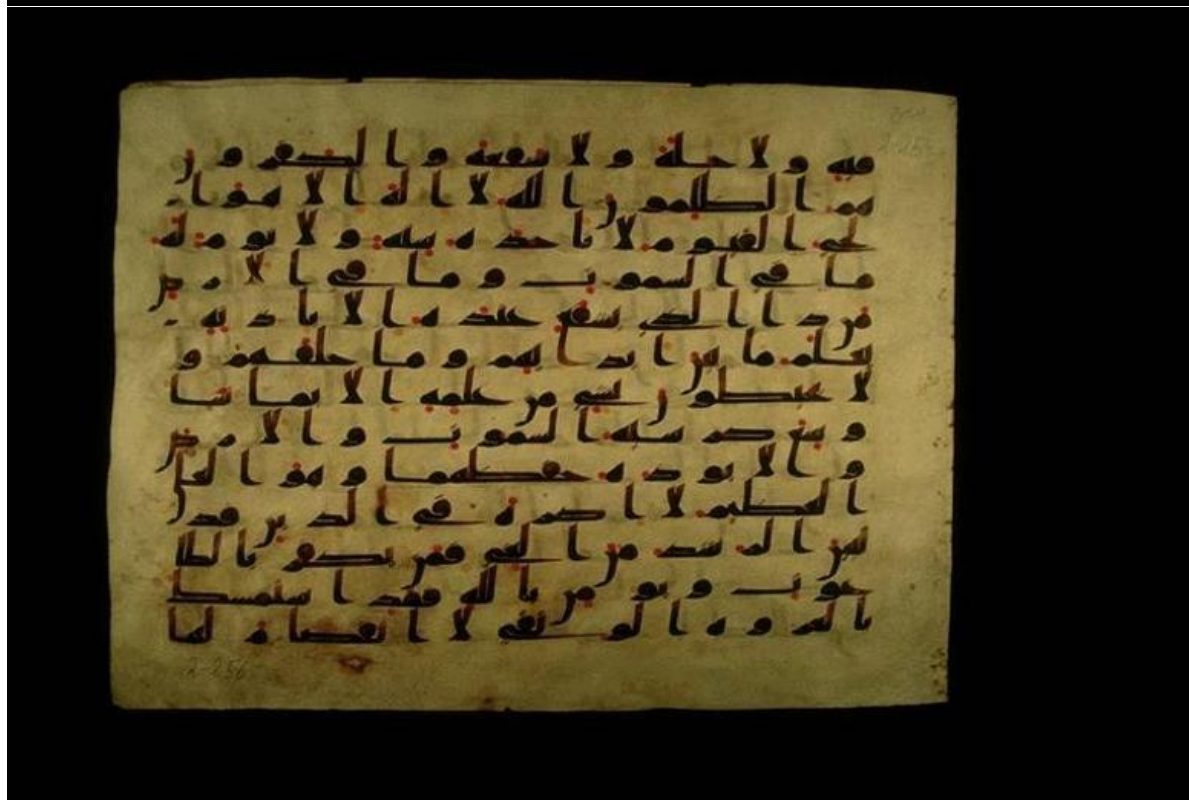 فيه ولا خلة ولا شفعة والكفرون
هم الظلمون الله لا اله الا هو ا
لحى القيوم لا تاخذه سنة ولا نوم له
ما فى السموت وما فى الارض
من ذا الذى يشفع عنده الا باذنه
يعلم ما بين ايديهم وما خلفهم و
لا يحيطون بشى من علمه الا بما شا
وسع كرسيه السموت والارض
ولا يوده حفظهما وهو العلى
العظيم لا اكره فى الدين قد
تبين الرشد من الغى فمن يكفر بالطا
غوت ويومن بالله فقد استمسك
بالعروه الوثقى لا انفصام لها
2-256